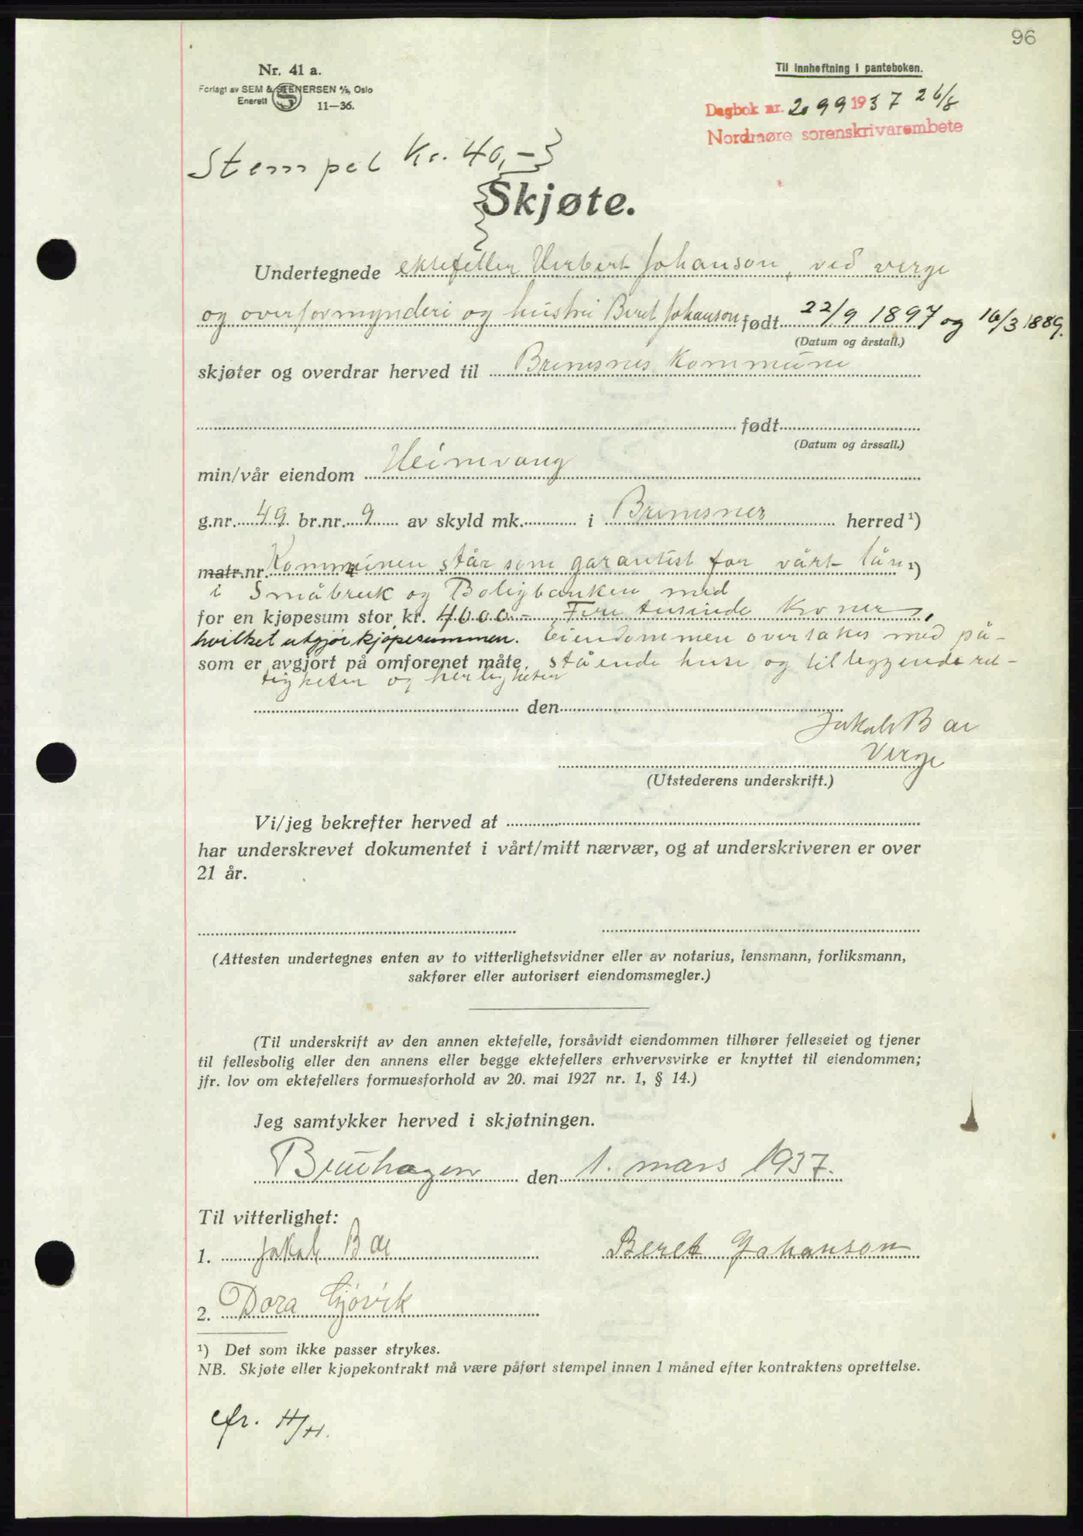 96
Nr. 41 a.
Forlagt av SEM & STENERSEN A/S, Oslo
Enerett S 11—36.
Til innheftning i panteboken.
Dagbok nr. 2099 1937 26/8
Nordmøre sorenskrivarembete
Stempel Kr. 40,-
Skjøte.
Undertegnede ektefeller Herbert Johanson, ved verge
og overformynderi og hustru Beret Johanson født 22/9 1897 og 16/3 1889.
(Datum og årstall.)
skjøter og overdrar herved til Bremsnes Kommune
født
(Datum og årssall.)
min/vår eiendom Heimvang
g.nr. 49 br.nr. 9 av skyld mk. i Bremsnes herred¹)
matr.nr. Kommunen står som garantist for vårt lån ¹)
i Småbruk og Boligbanken med
for en kjøpesum stor kr. 4000.- Fire tusinde Kroner,
hvilket utgjør kjøpesummen. Eiendommen overtakes med på-
som er avgjort på omforenet måte. stående huse og tilleggende ret-
tigheter og herligheter
den
Jakob Bae
Verge
(Utstederens underskrift.)
Vi/jeg bekrefter herved at
har underskrevet dokumentet i vårt/mitt nærvær, og at underskriveren er over
21 år.
(Attesten undertegnes enten av to vitterlighetsvidner eller av notarius, lensmann, forliksmann,
sakfører eller autorisert eiendomsmegler.)
(Til underskrift av den annen ektefelle, forsåvidt eiendommen tilhører felleseiet og tjener
til fellesbolig eller den annens eller begge ektefellers erhvervsvirke er knyttet til eiendommen;
jfr. lov om ektefellers formuesforhold av 20. mai 1927 nr. 1, § 14.)
Jeg samtykker herved i skjøtningen.
Bruhagen den 1. mars 1937.
Til vitterlighet:
1. Jakob Bae Beret Johanson
2. Dora Gjøvik
¹) Det som ikke passer strykes.
NB. Skjøte eller kjøpekontrakt må være påført stempel innen 1 måned efter kontraktens oprettelse.
cfr. H/H.